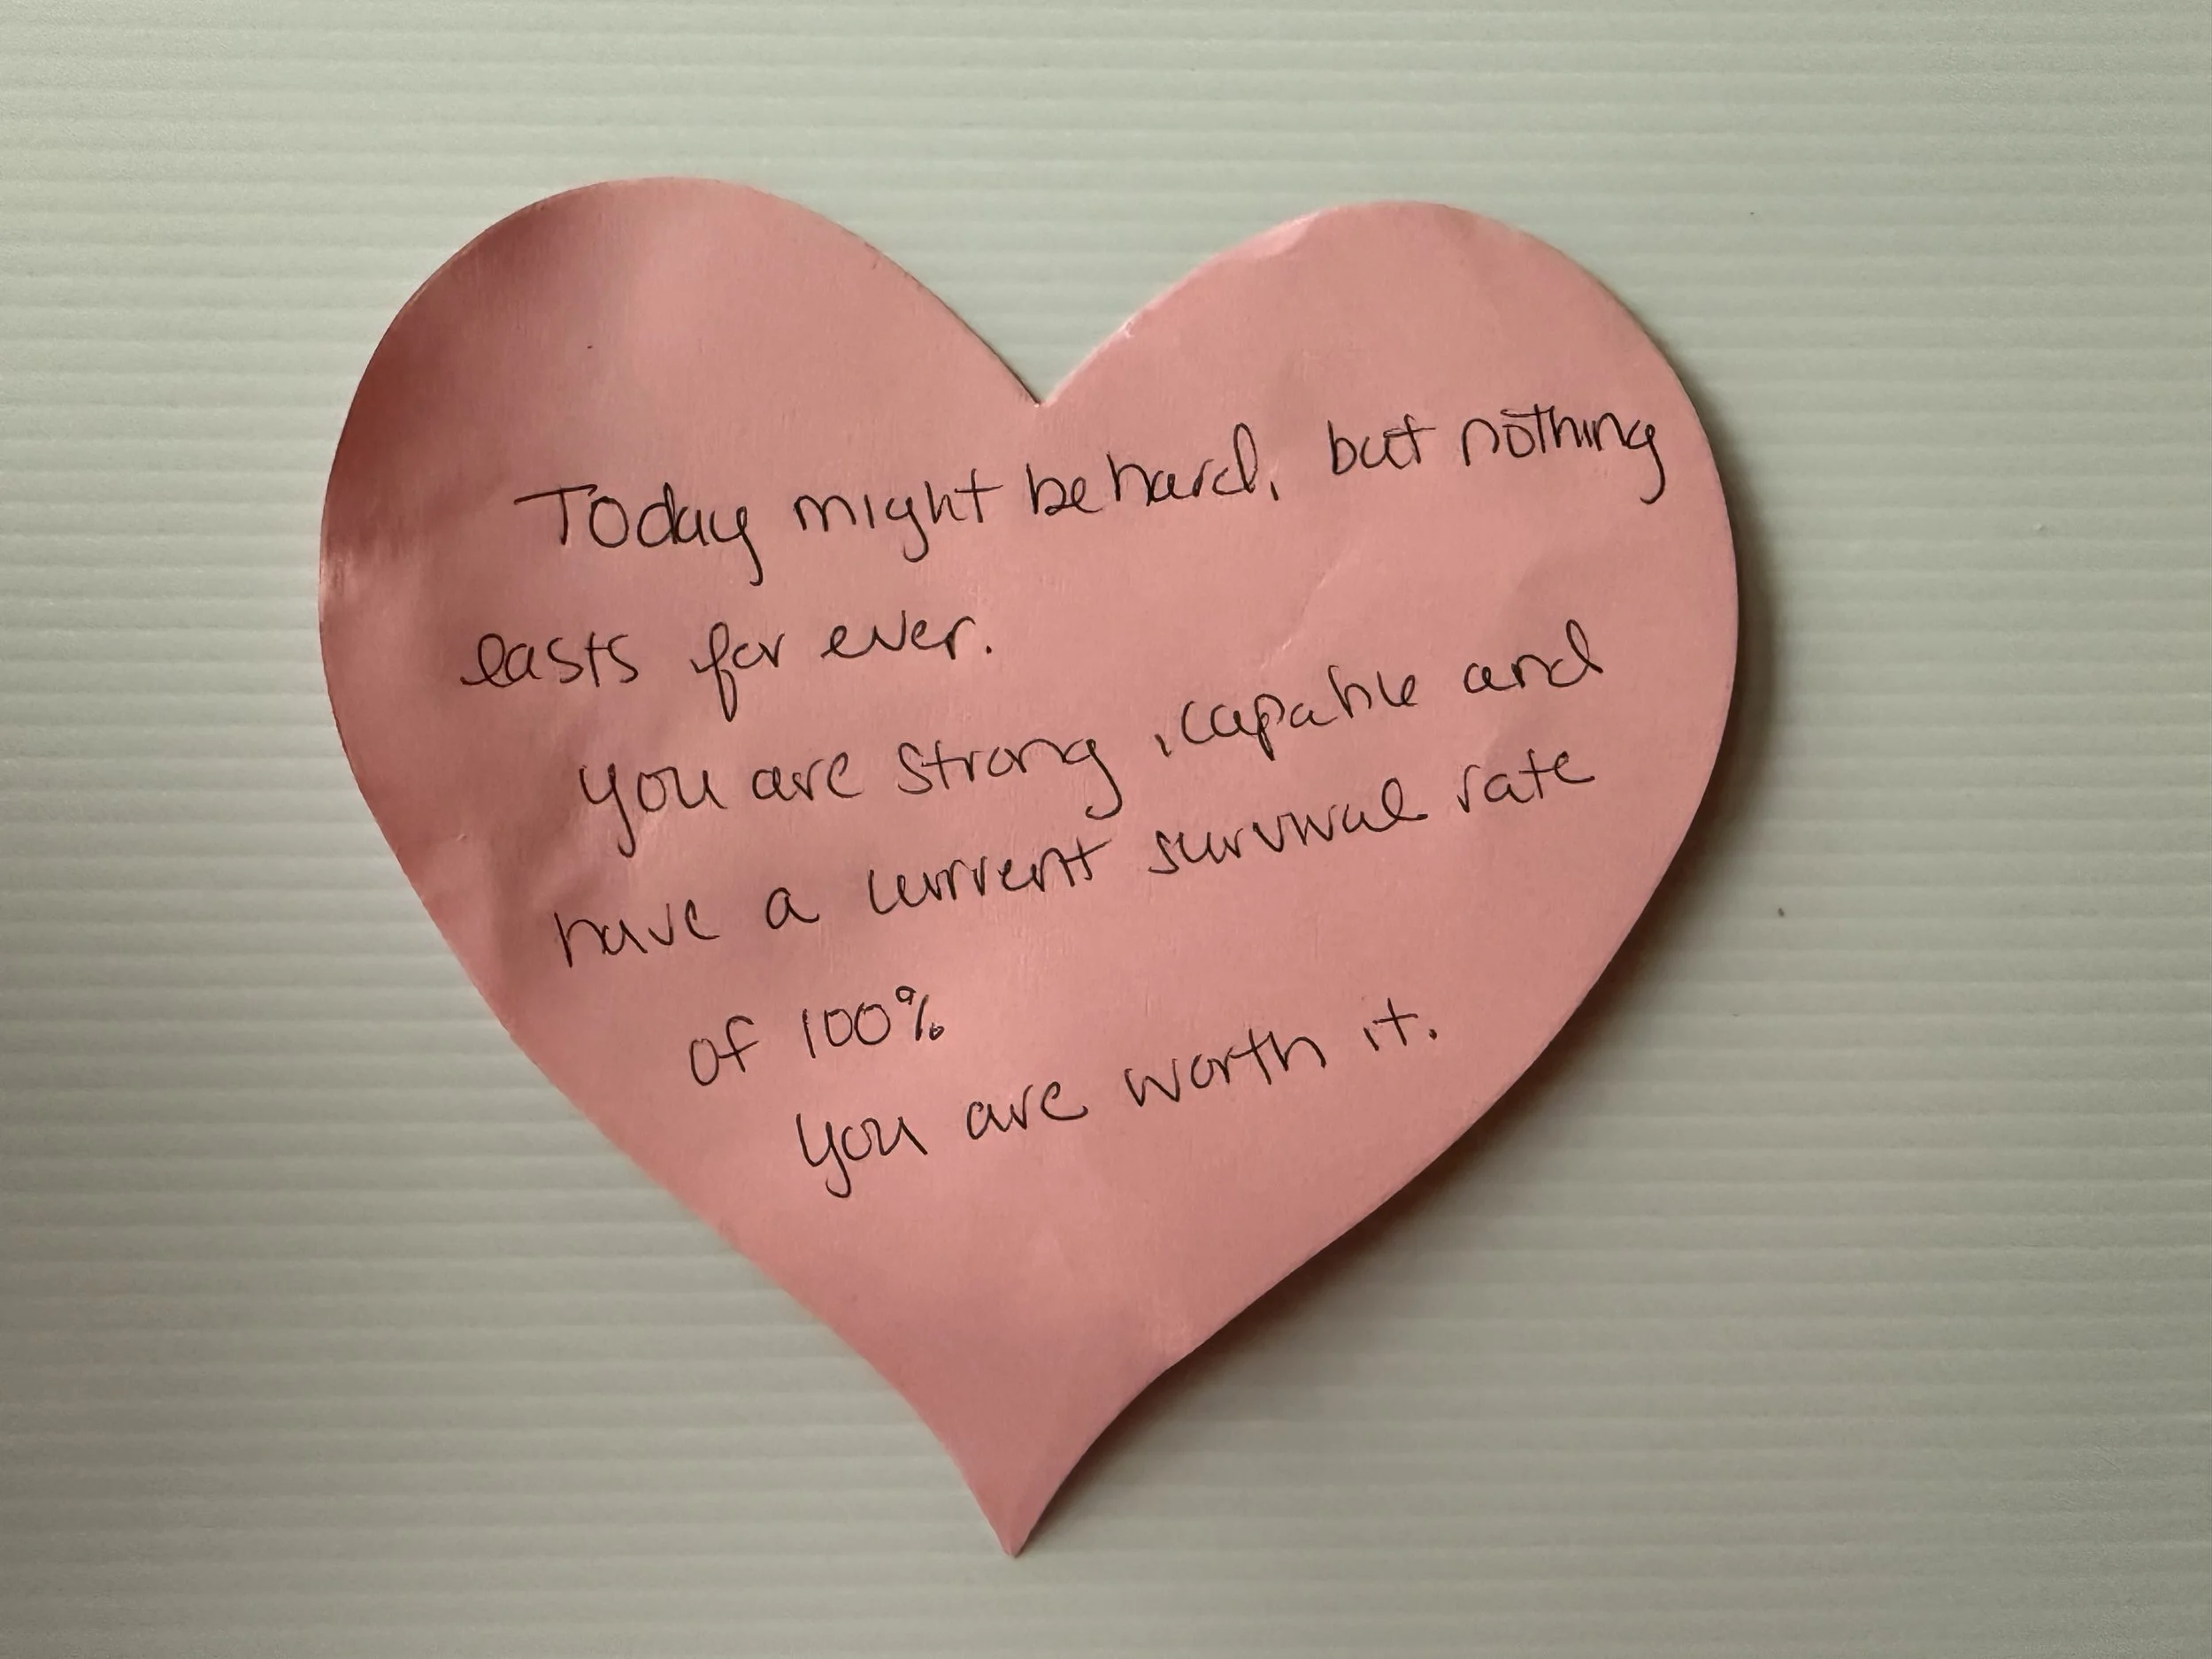 Today might be hard, but nothing
lasts for ever.
You are strong, capable and
have a current survival rate
of 100%
You are worth it.